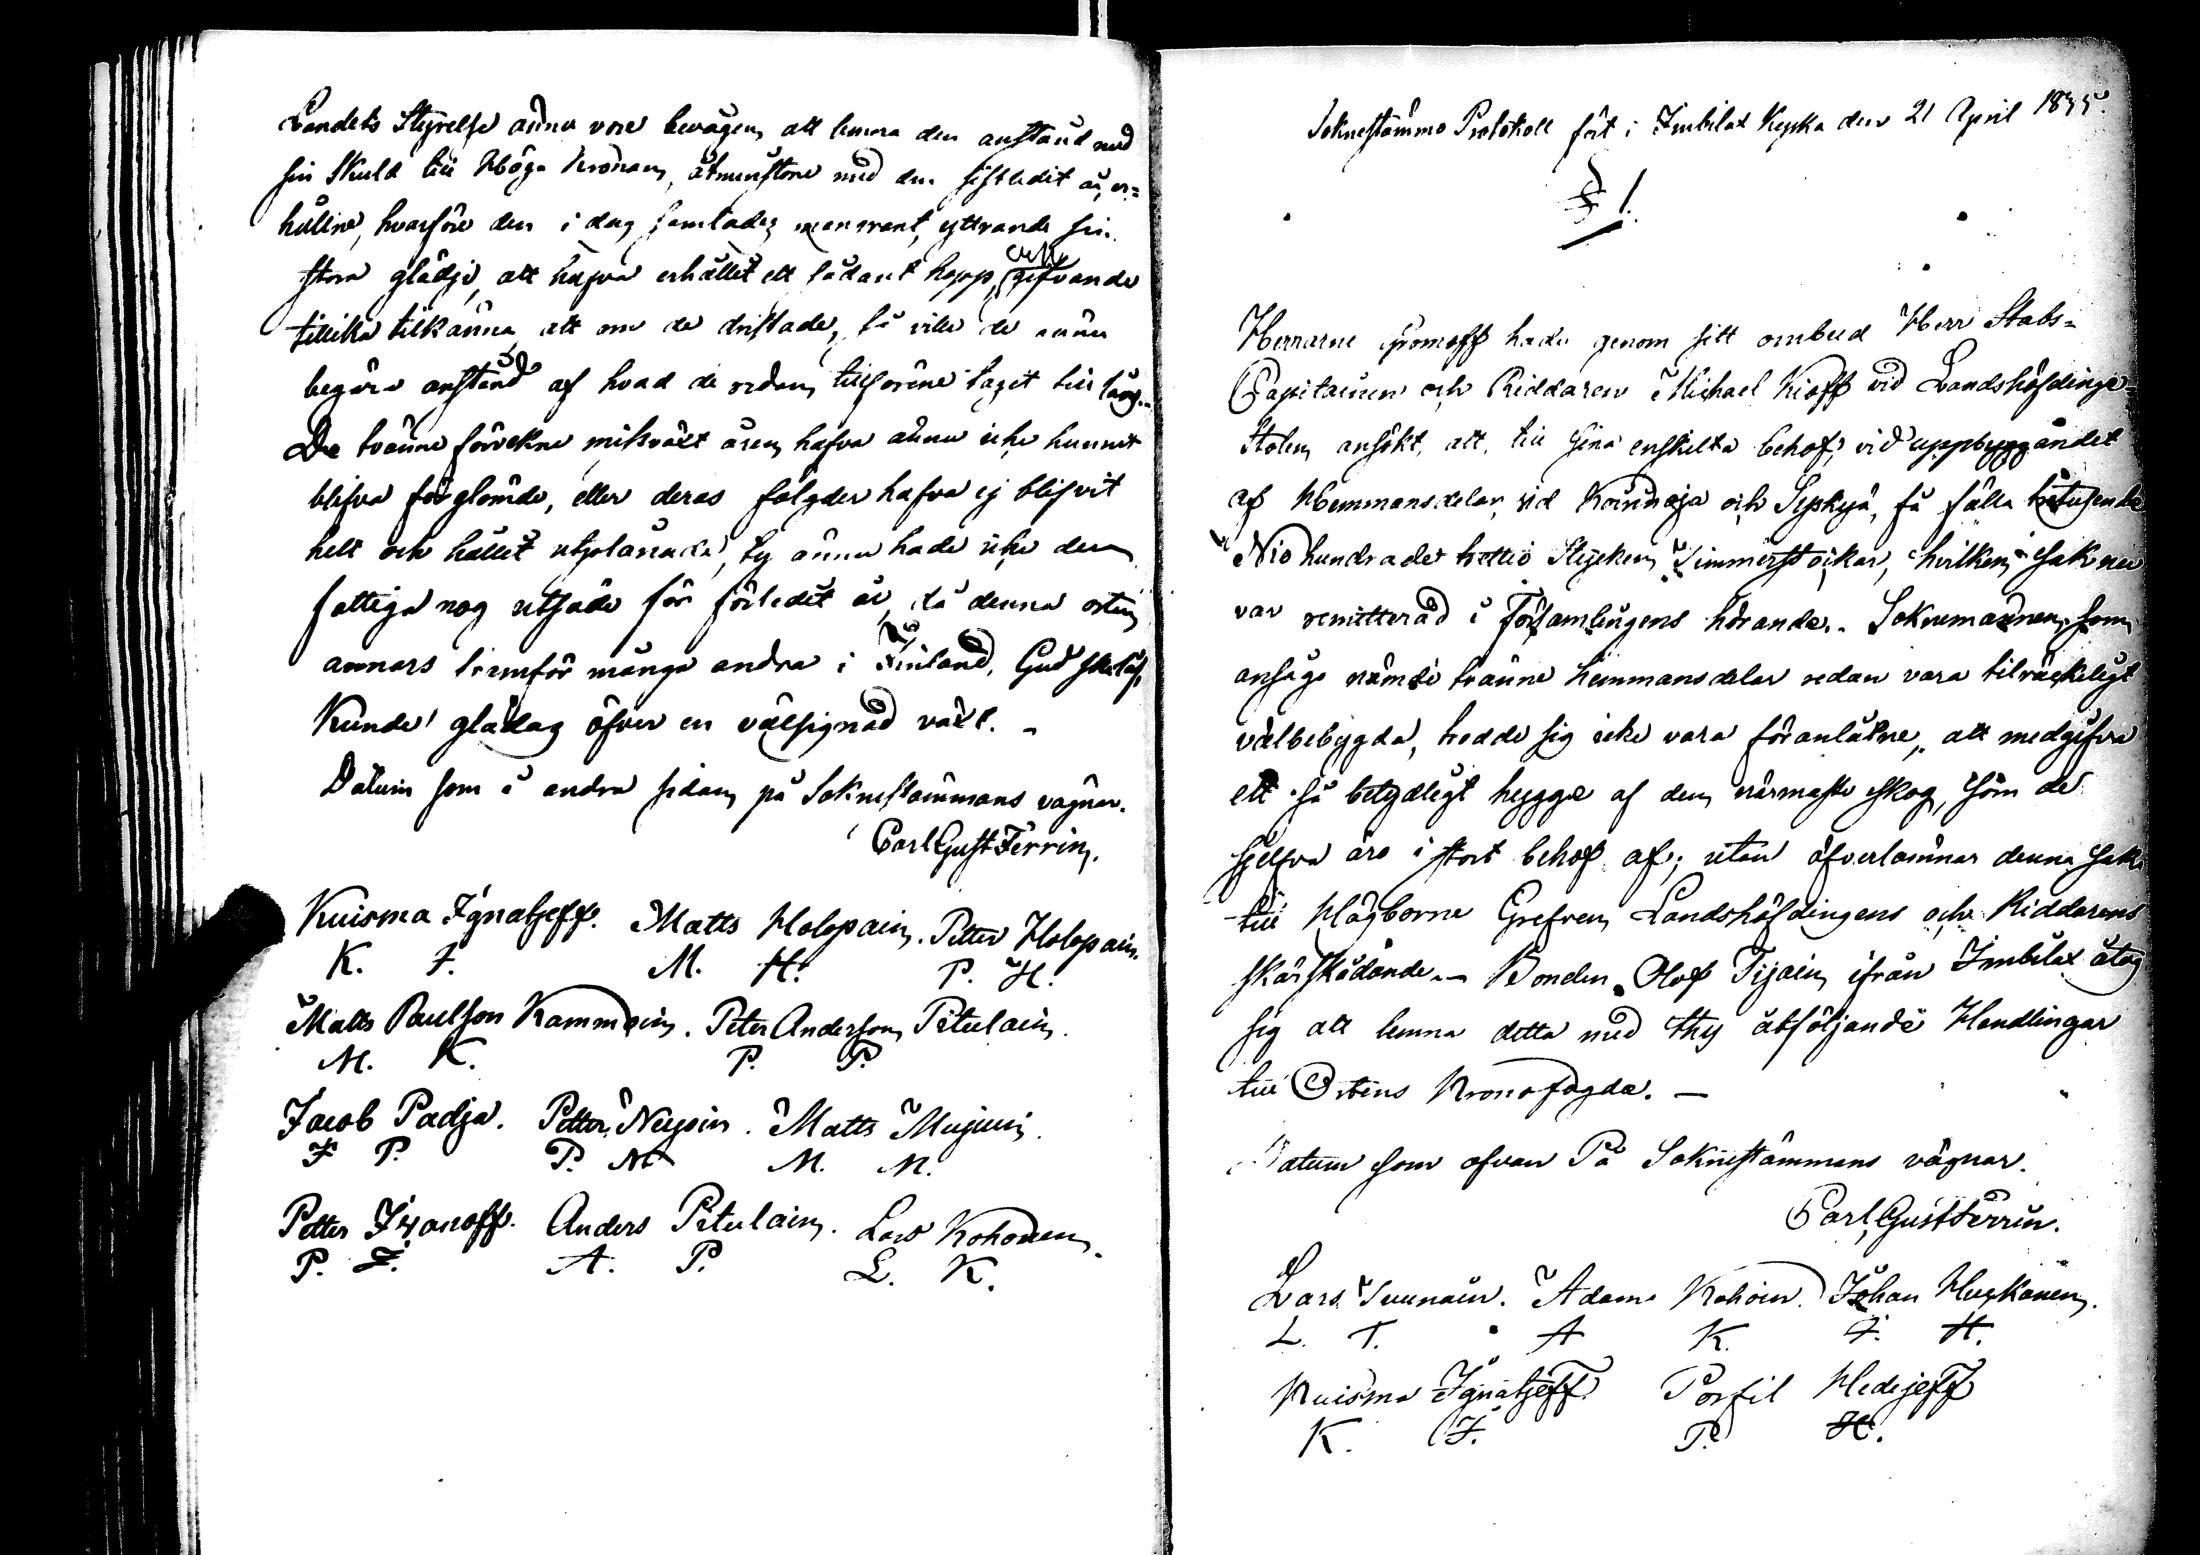 Landets Styrelse ännu vore bevågen, att lemna den anstånd med
sin skuld till Höga Kronan, åtminstone med den sistledit år, er=
hållne, hvarföre den i dag samlade menvant, yttrande sin
stora glädje, att hafva erhållit ett sådant hopp, gifvande
tillika tilkänna, att om de dristade, så ville de ännu
begära anstånd af hvad de redan tillförene tagit till låns.
De tvänne förvekne miksväxt åren hafva ännu icke hunnit
blifva förglömde, eller deras fölgder hafva ej blifvit
helt och hållit utplånade, ty ännu hade icke den
fattiga nog utsäde för förledit år, då denna orten
annars framför många andra i Finland, Gud skelåf,
Kunde glädas öfver en välsignad växt. -
Datum som å andra sidan, på Soknestämmans vägnar.
Carl Gust Ferrin.
Kuisma Ignatjeff. Matts Holopain. Petter Holopain.
K. I. M. H. P. H.
Matts Paulson Kammoin. Peter Anderson Pitulain.
M. K. P. P.
Jacob Padja. Petter Neysin. Matts Mujuin.
J P. P. N M. M.
Petter Ivanoff. Anders Pitulain. Lars Kohonen.
P. I. A. P. L. K.
Soknestämmo Protokoll fört i Imbilax Kyrka den 21 April 1835.
§ 1.
Herrarne Gromoff hade genom sitt ombud Herr Stabs=
Capitainen och Riddaren Michael Kioff vid Landshöfdinge=
Stolen ansökt, att till sina enskilta behof, vid uppbyggandet
af Hemmansdelar vid Koirinoja och Syskyä, få fälla tretusende
Niohundrade trettio Stycken Timmerstockar, hvilken sak nu
var remitterad i Församlingens hörande. Soknemännen, som
ansågo nämde tvänne hemmansdelar redan vara tilräckeligt
välbebygda, trodde sig icke vara föranlåtne, att medgifva
ett så betydligt hygge af den närmaste skog, som de
sjelfva äro i stort behof af; utan öfverlämnar denna sak
till Högborne Grefven Landshöfdingens och Riddarens
skärskådande. - Bonden Olof Tijain ifrån Imbilax åtog
sig att lemna detta med thy åtföljande Handlingar
till Ortens Kronofogde. -
Datum som ofvan På Soknestämmans vägnar.
Carl Gust Ferrin.
Lars Tuunain. Adam Kohoin. Johan Huskonen.
L. T. A K. J. H.
Kuisma Ignatjeff Porfil Hedejeff
K. I. P. H.